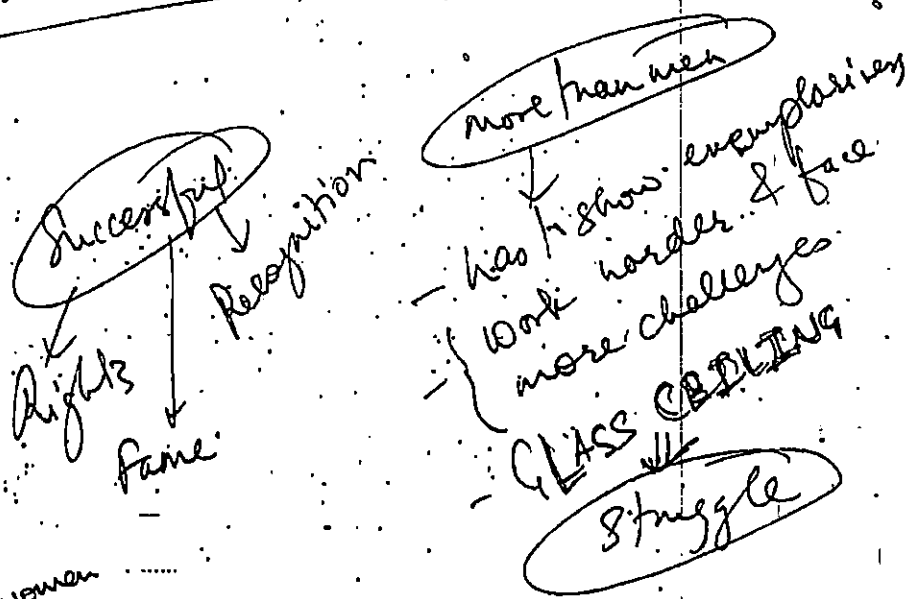 Successful
Rights
Fame
Recognition
more than men
- has to show exemplariness
- work harder & face
more challenges
- GLASS CEILING
Struggle
women